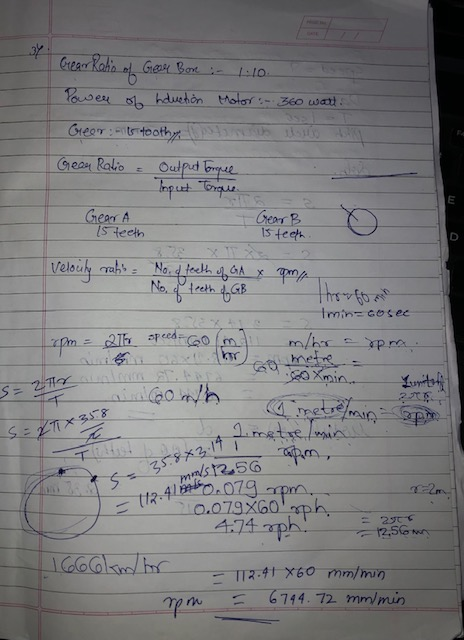 37.
Gear Ratio of Gear Box :- 1:10.
Power of Induction Motor :- 360 watt.
Gear :- 15 tooth
Gear Ratio = Output Torque
Input Torque
Gear A Gear B
15 teeth 15 teeth.
Velocity ratio = No. of teeth of GA × rpm
No. of teeth of GB
1 hr = 60 min
1 min = 60 sec
rpm = 2πr speed = 60 [m/hr] m/hr = rpm.
60 metre =
60 × min.
S = 2πr
T
60 m/h
1 metre/min. = rpm
2πr
S = 2π × 358
2
T
1 metre/min
1 rpm.
12.56
S = 358 × 3.14
= 112.41 mm/s
0.079 rpm.
0.079×60 rph.
4.74 rph.
r=2m.
= 2πr
= 12.56 m
1666 km/hr
= 112.41 ×60 mm/min
rpm = 6744.72 mm/min